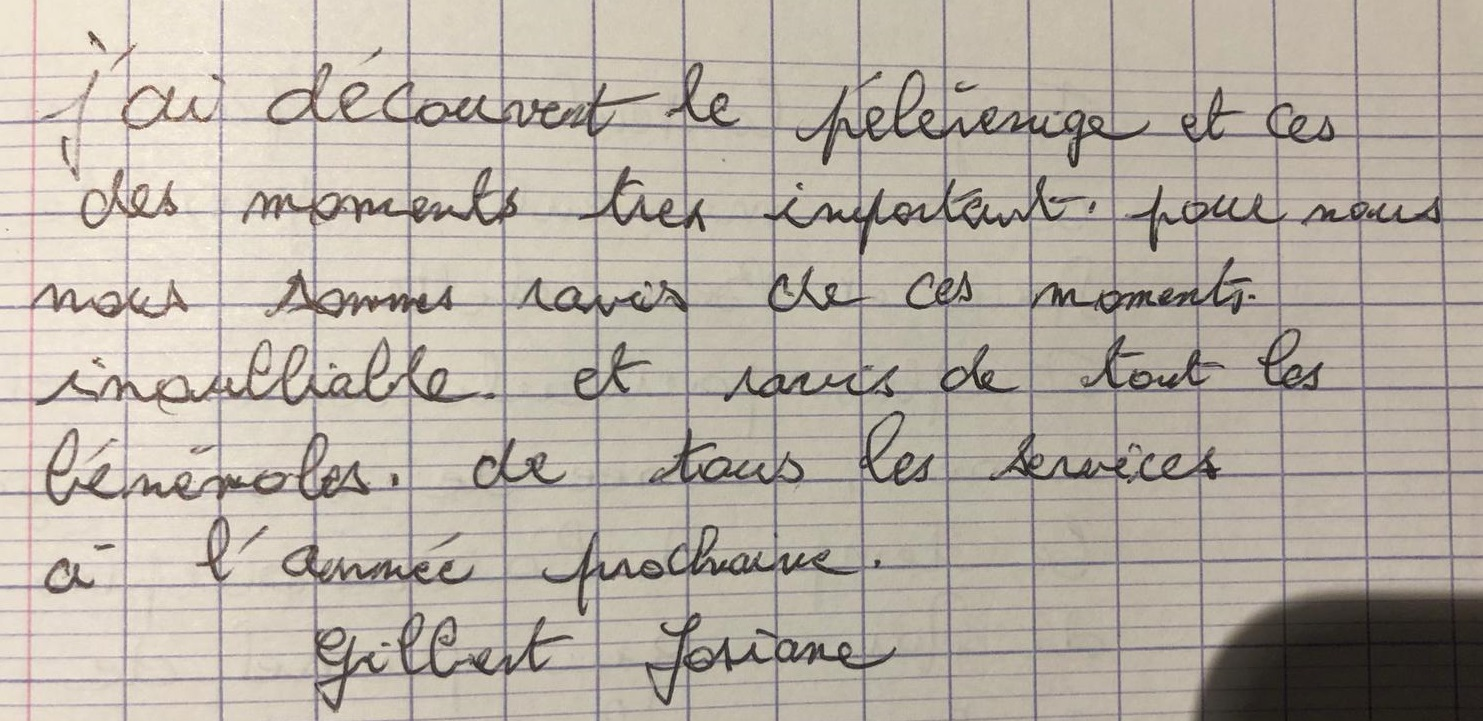 j'ai découvert le pélerenige et ces
des moments tres important. pour nous
nous sommes ravis de ces moments.
inoulliable. et ravis de tout les
bénénoles. de tous les services
à l'année prochaine.
Gilbert Josiane